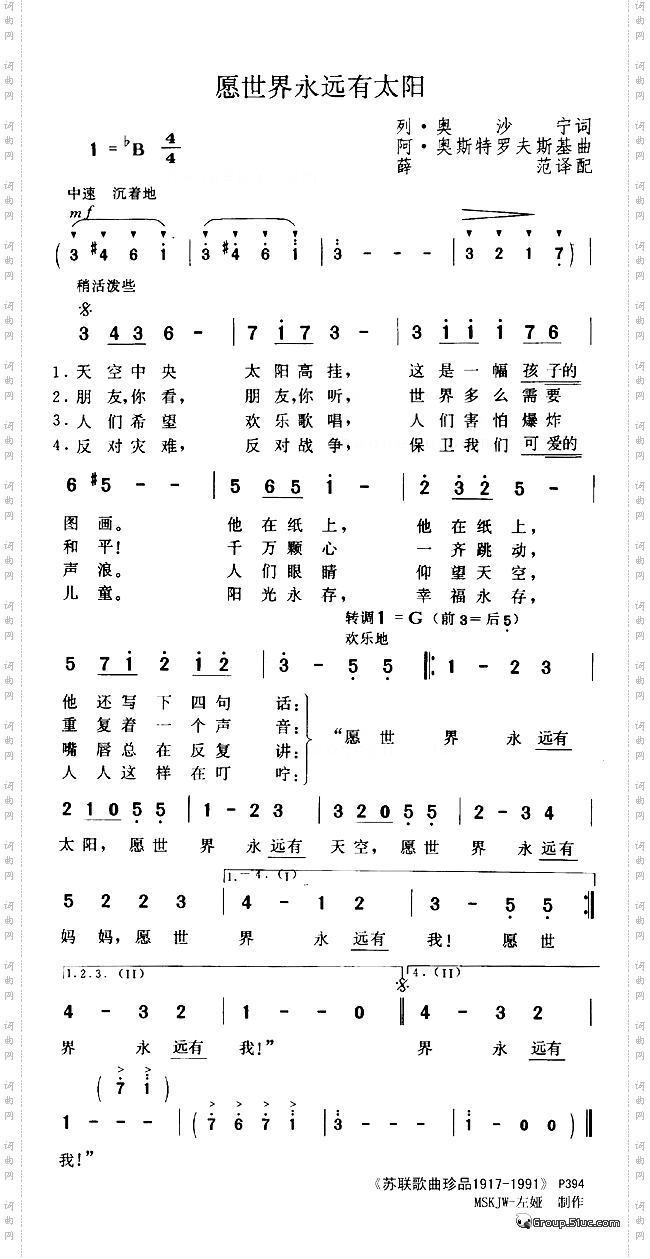 愿世界永远有太阳
列·奥沙宁词
1=♭B 4/4
阿·奥斯特罗夫斯基曲
薛范译配
中速 沉着地
mf
( 3 #4 6 i | 3 #4 6 i | i - - - | 3 2 1 7 )
稍活泼些
3 4 3 6 - | 7 i 7 3 - | 3 i i i 7 6 |
1.天空中央 太阳高挂, 这是一幅孩子的
2.朋友,你看, 朋友,你听, 世界多么需要
3.人们希望 欢乐歌唱, 人们害怕爆炸
4.反对灾难, 反对战争, 保卫我们可爱的
6 #5 - - | 5 6 5 i - | 2 3 2 5 - |
图画。 他在纸上, 他在纸上,
和平! 千万颗心 一齐跳动,
声浪。 人们眼睛 仰望天空,
儿童。 阳光永存, 幸福永存,
转调1=G(前3=后5)
欢乐地
5 7 i 2 i 2 | 3 - 5 5 |: 1 - 2 3 |
他还写下四句话:
重复着一个声音:
“愿世界永远有
嘴唇总在反复讲:
人人这样在叮咛:
2 1 0 5 5 | 1 - 2 3 | 3 2 0 5 5 | 2 - 3 4 |
太阳,愿世界永远有天空,愿世界永远有
1.-4.(I)
5 2 2 3 | 4 - 1 2 | 3 - 5 5 :|
妈妈,愿世界永远有我! 愿世
1.2.3.(II) 4.(II)
4 - 3 2 | 1 - - 0 || 4 - 3 2 |
界永远有我!” 界永远有
( 7 i )
1 - - - | ( 7 6 7 i | 3 - - - | 3 - - 2 | i - 0 0 ) ||
我!”
《苏联歌曲珍品1917-1991》 P394
MSKJW-左娅 制作
Group.51uc.com
词曲网